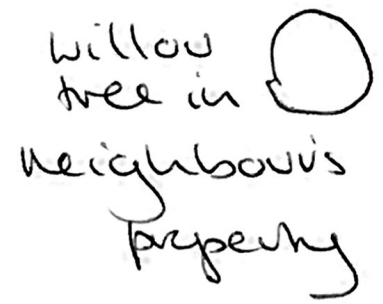 willow
tree in
neighbour's
property